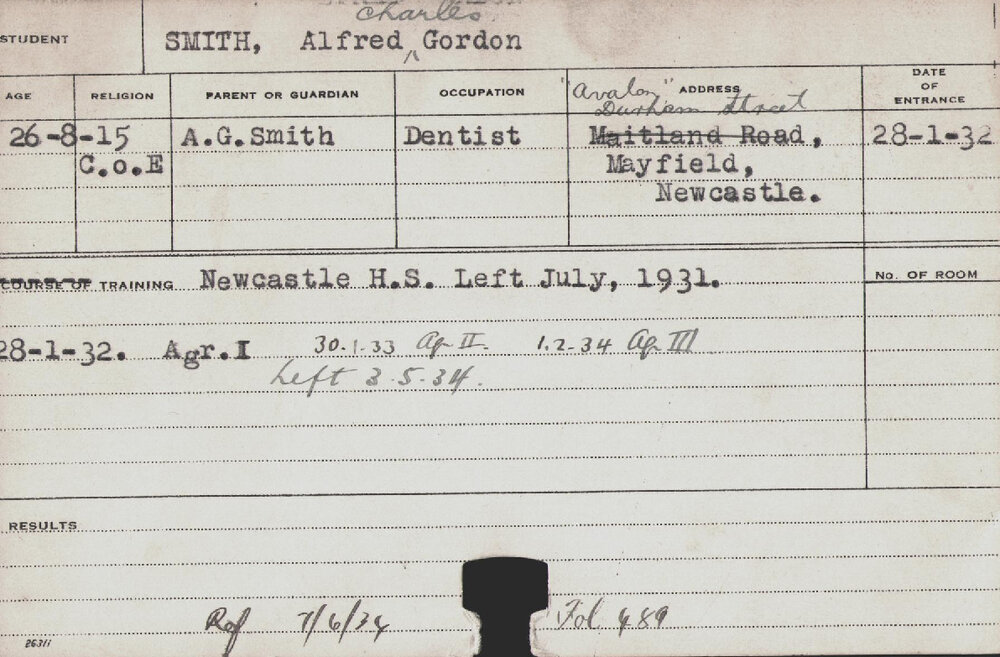 Charles
STUDENT SMITH, Alfred ^ Gordon
AGE RELIGION PARENT OR GUARDIAN OCCUPATION ADDRESS DATE OF ENTRANCE
"Avalon"
Durham Street
26-8-15 A.G.Smith Dentist Maitland Road, 28-1-32
C.o.E Mayfield,
Newcastle.
COURSE OF TRAINING Newcastle H.S. Left July, 1931. No. OF ROOM
28-1-32. Agr.I 30.1.33 Ag II. 1.2.34 Ag III
Left 3.5.34.
RESULTS
Ref 7/6/34 Fol 489
26311